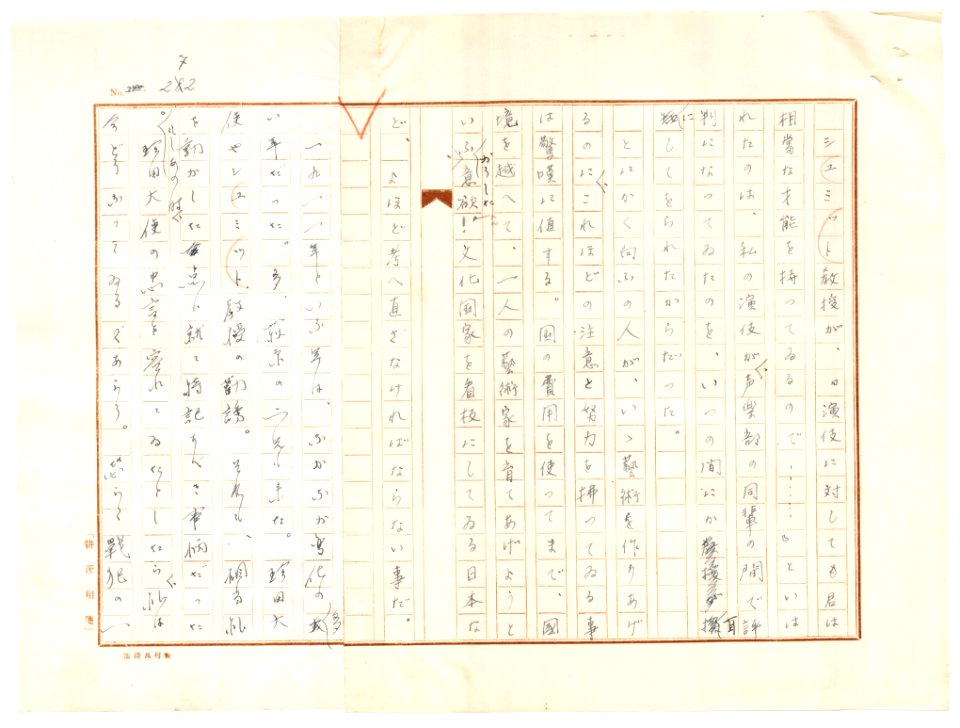 No. 282
シュミット教授が、"演伎に対しても君は
相當な才能を持つてゐるので……"といは
れたのは、私の演伎が声楽部の同輩の間で評
判になつてゐたのを、いつの間にか耳
にしてをられたからだつた。
とにかく向ふの人が、いゝ藝術を作りあげ
るのにこれほどの注意と努力を拂つてゐる事
は驚嘆に値する。国の費用を使つてまで、國
境を越へて、一人の藝術家を育てあげようと
いふ意欲！文化國家を看板にしてゐる日本な
ど、よほど考へ直さなければならない事だ。
一九一一年といふ年は、なかなか変化の多
い年だつた。 大
使やシュミット教授の勧誘。それも、相当私
を動かした点に就て特記すべき事柄だつた
。 大使の忠言を容れてゐたとしたら、私は
今どうなつてゐるであらう。恐らく戦犯の一